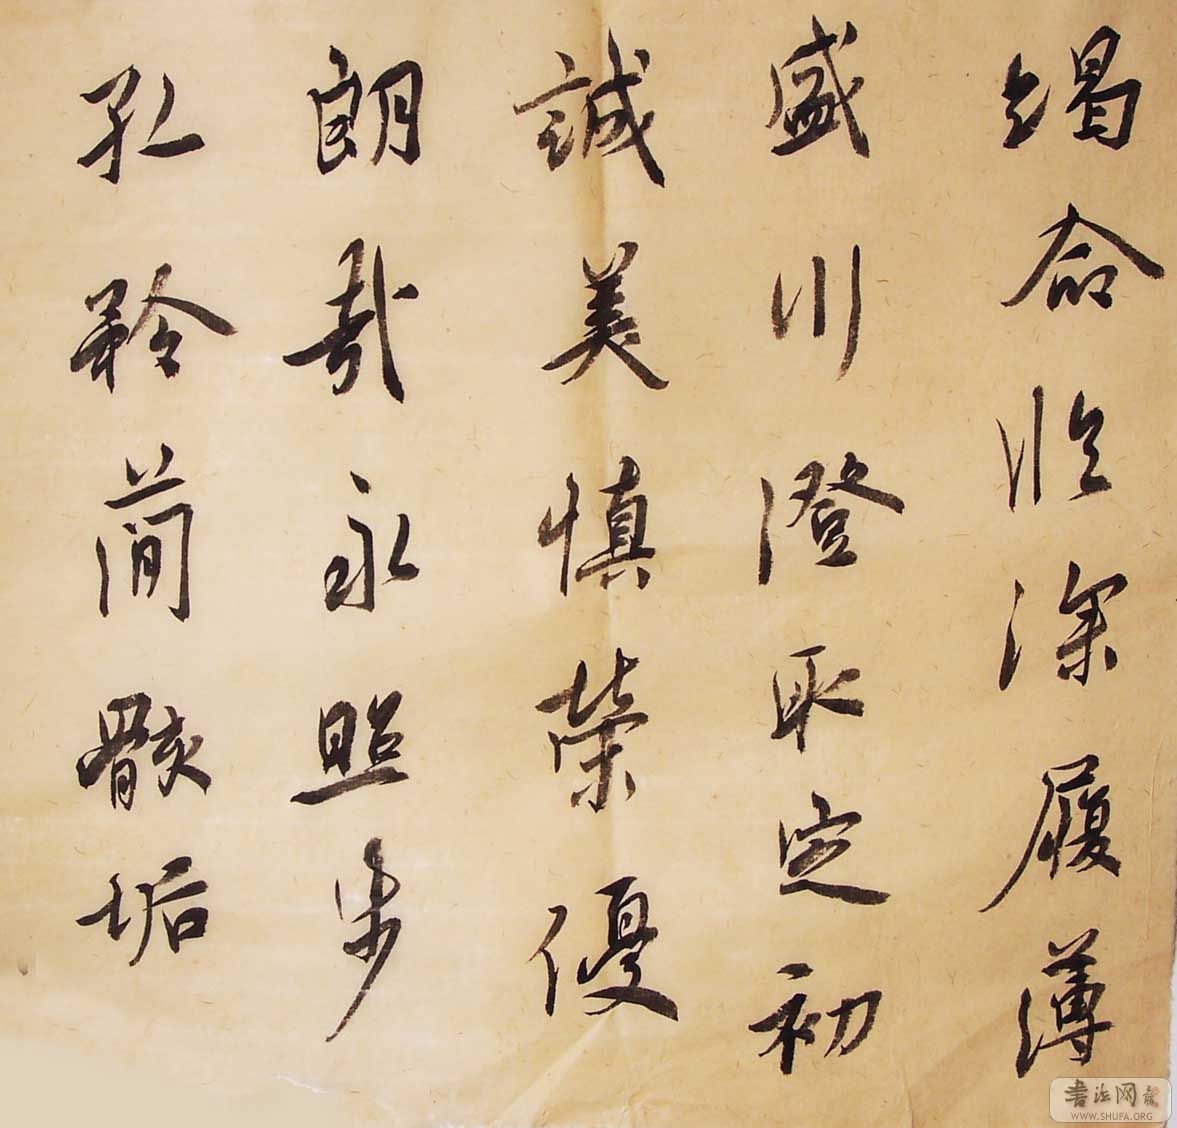 竭命临深履薄
盛川澄取定初
誠美慎榮優
朗哉永照步
孔矜简骸垢
書法网
WWW.SHUFA.ORG